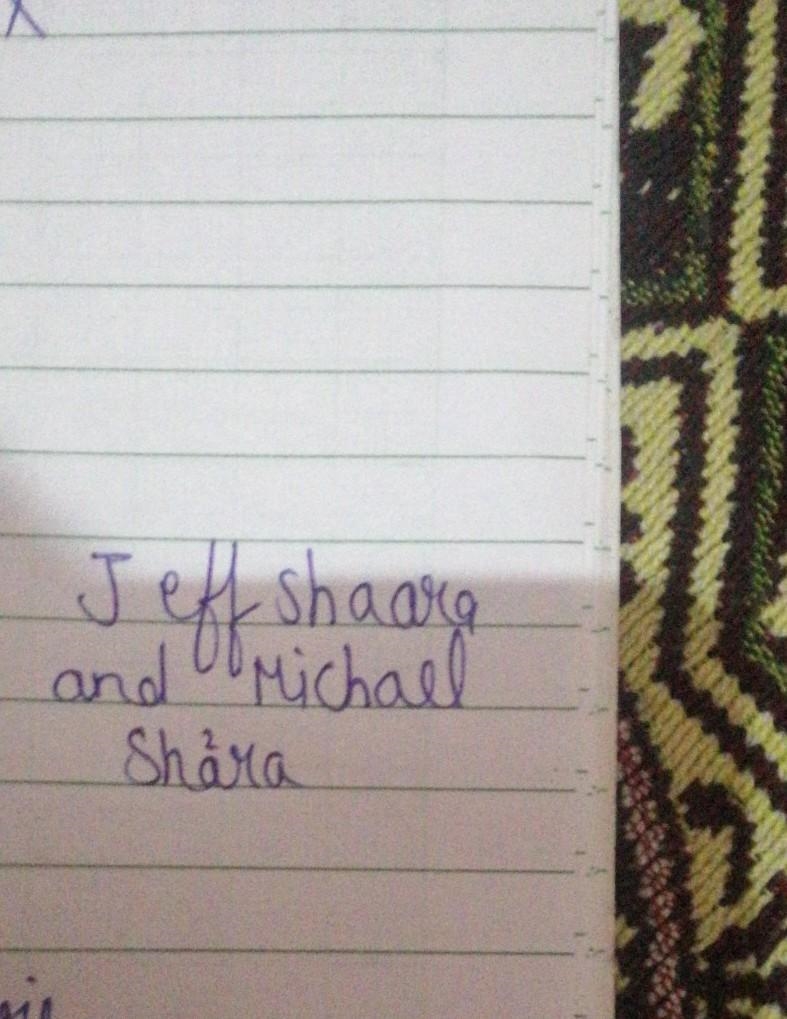 Jeff Shaara
and Michael
Shara